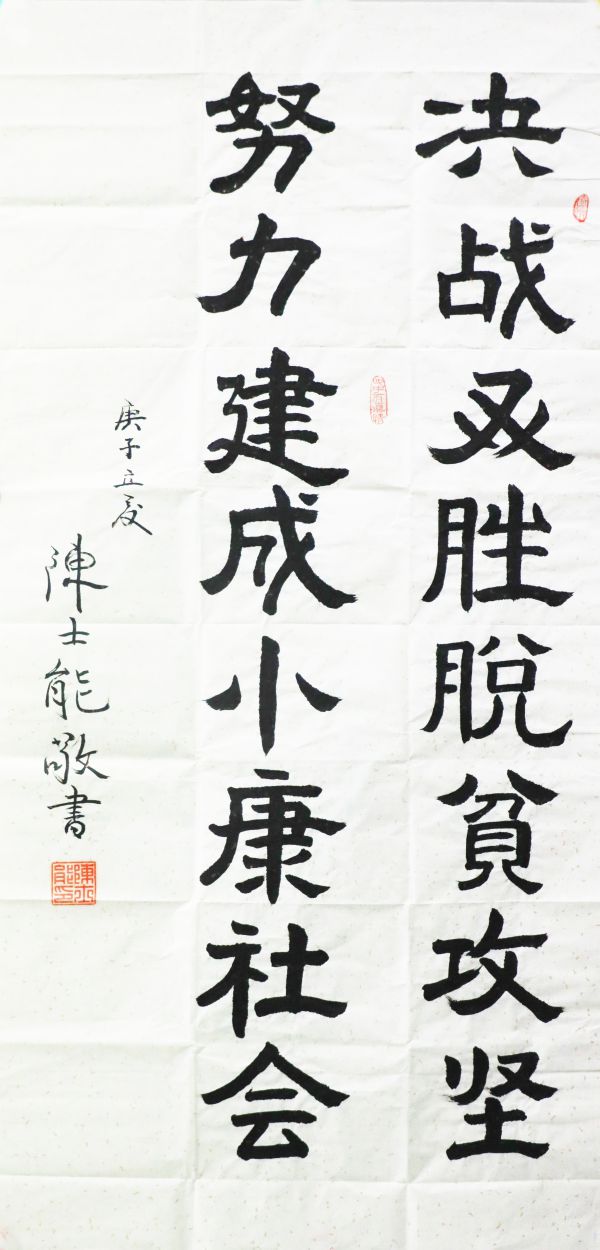 决战胜脱贫攻坚
努力建成小康社会
庚子立夏
陳士能敬書
陳士能印